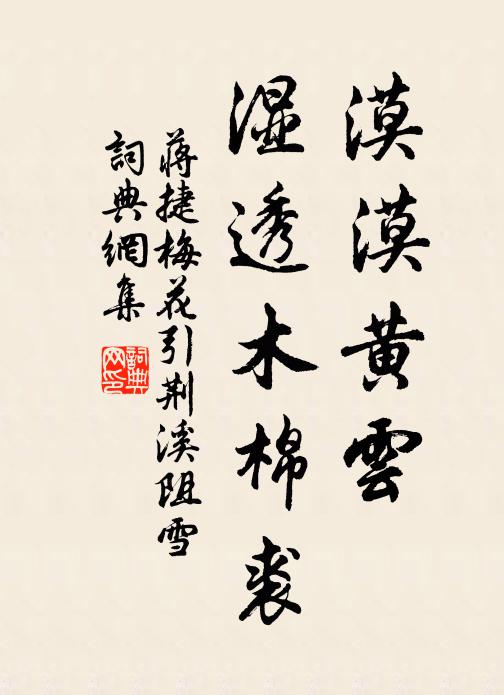 漠漠黄雲
湿透木棉裘
蔣捷梅花引荆溪阻雪
詞典網集
詞典網印